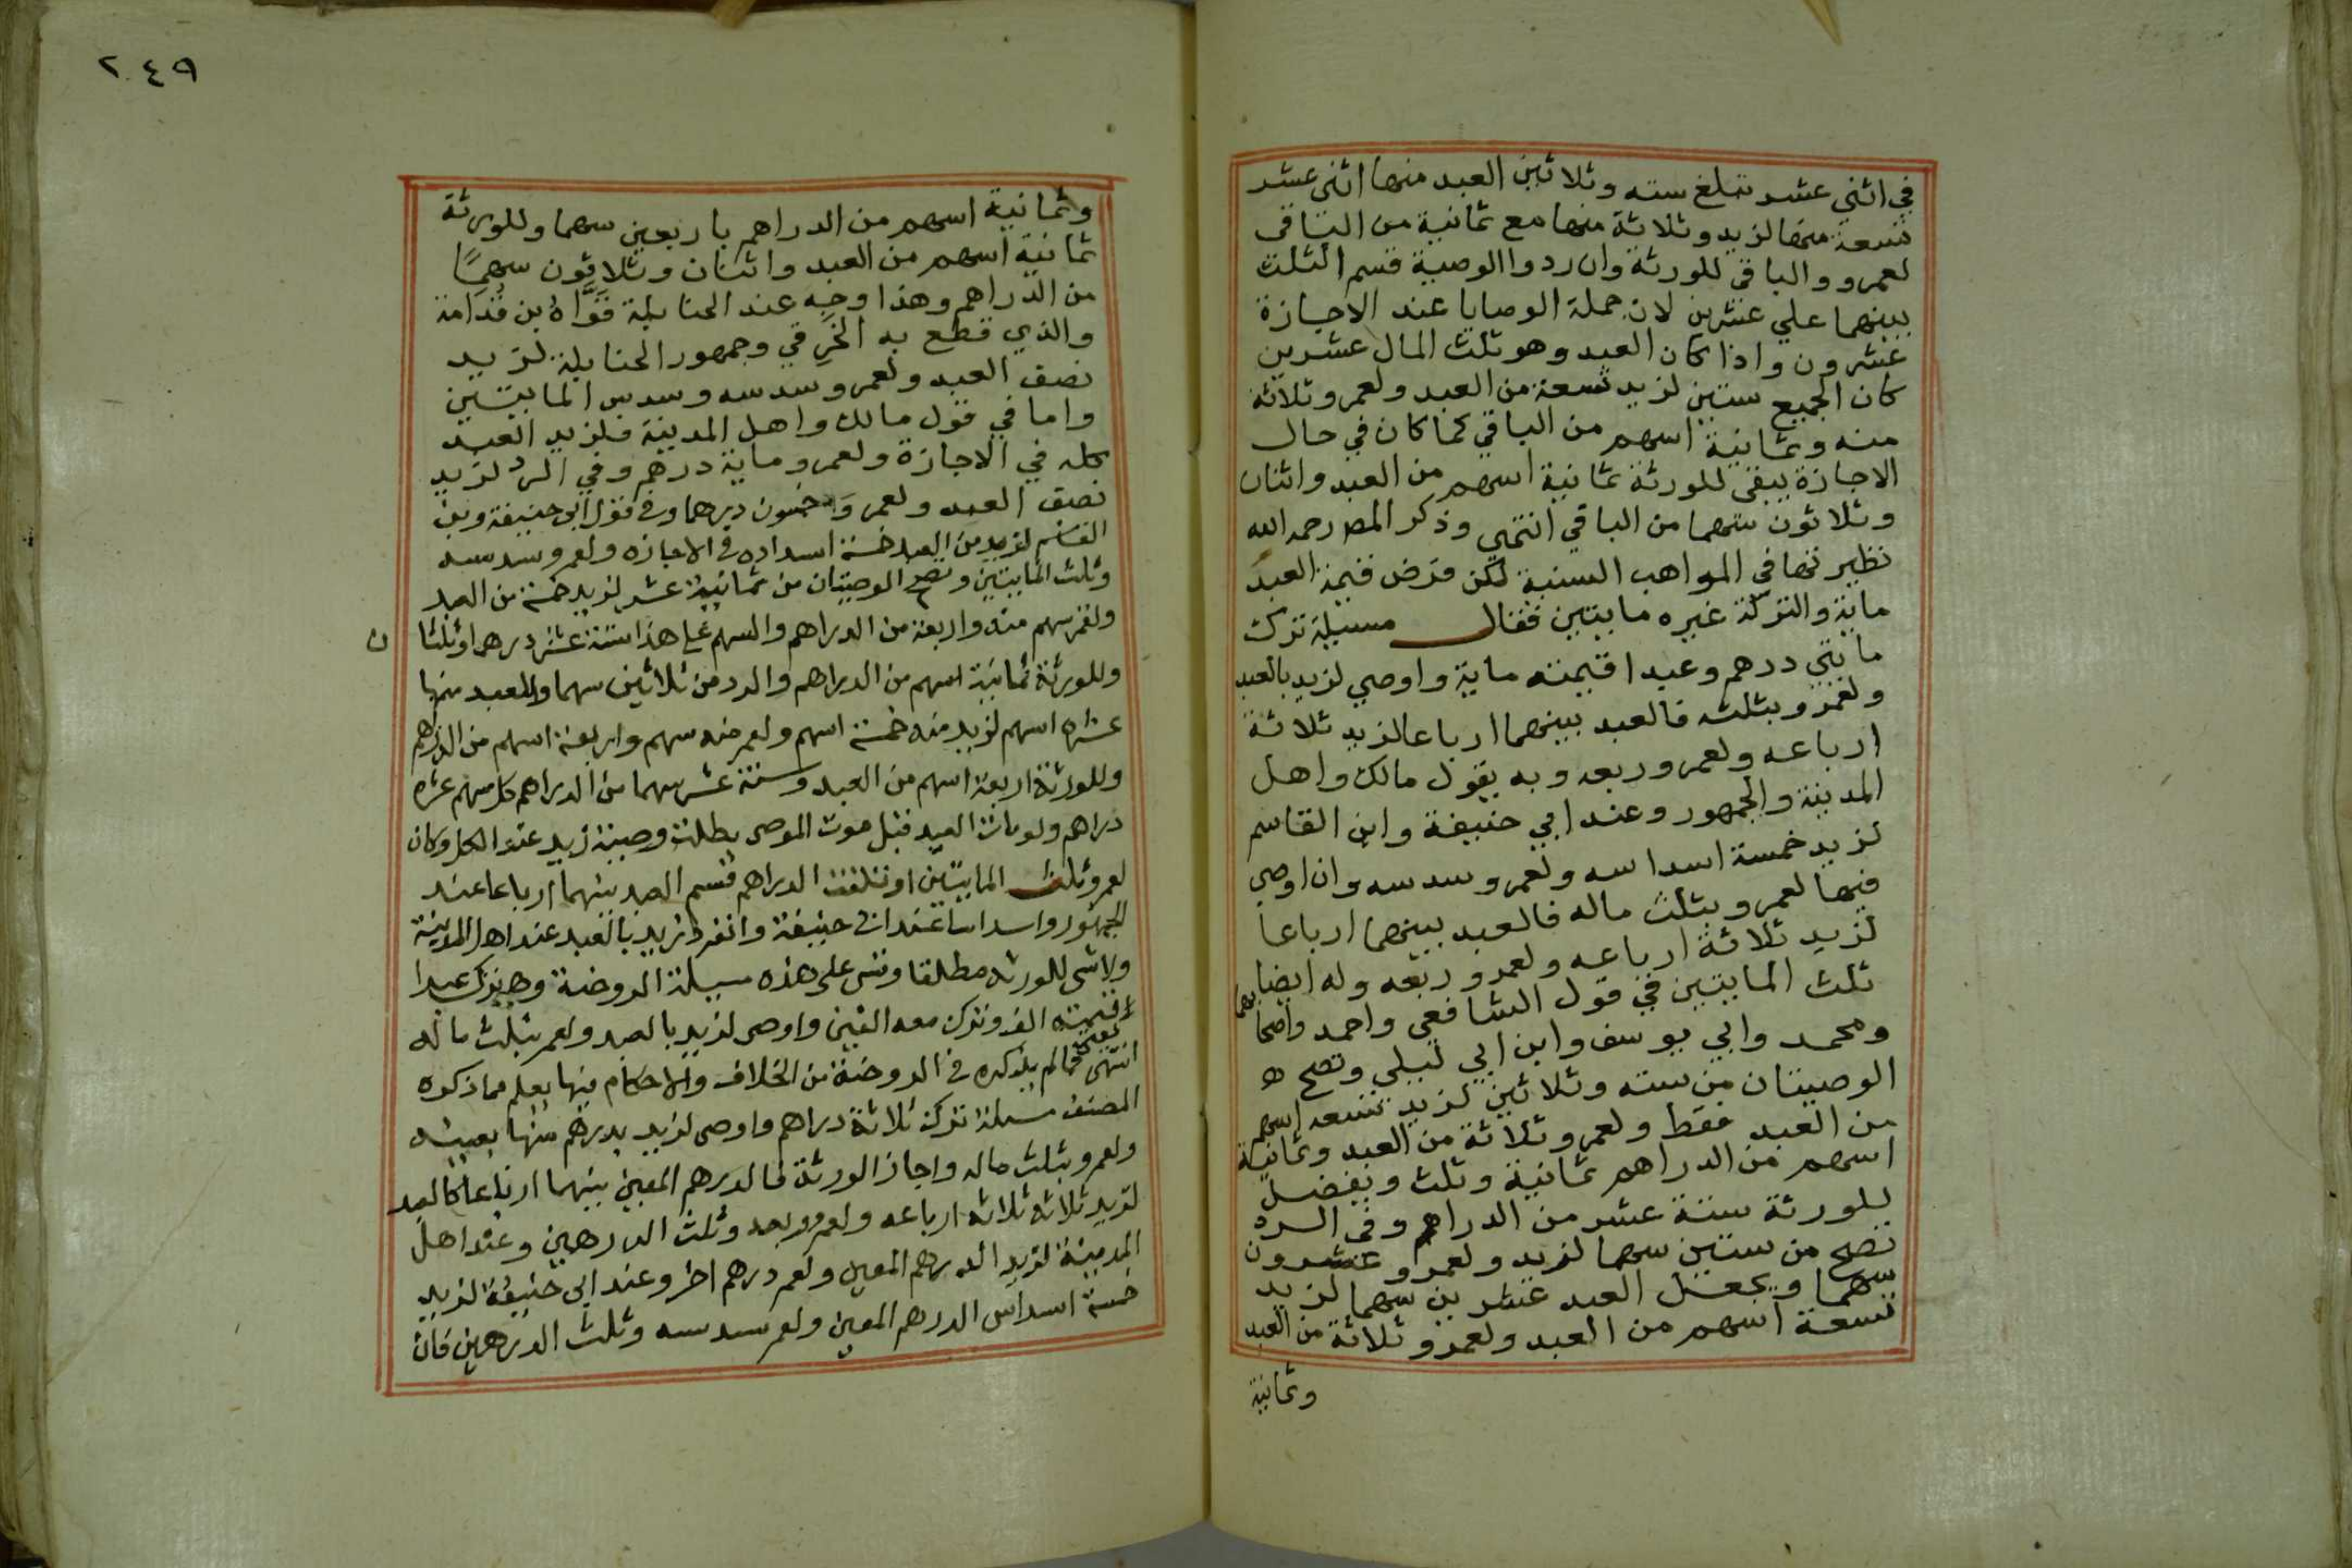 في اثني عشر تبلغ سته وثلاثين العبد منها اثني عشر
تسعة منها لزيد وثلاثة منها مع ثمانية من الباقي
لعمرو والباقي للورثة وان ردوا الوصية قسم الثلث
بينهما علي عشرين لان جملة الوصايا عند الاجازة
عشرون واذا كان العبد وهو ثلث المال عشرين
كان الجميع ستين لزيد تسعة من العبد ولعمرو ثلاثة
منه وثمانية اسهم من الباقي كما كان في حال
الاجازة يبقي للورثة ثمانية اسهم من العبد واثنان
وثلاثون سهما من الباقي انتهي وذكر المص رحمه الله
نظيرتها في المواهب السنية لكن فرض قيمة العبد
ماية والتركة غيره مايتين فقال مسيلة ترك
مايتي درهم وعبدا قيمته ماية واوصي لزيد بالعبد
ولعمرو بثلثه فالعبد بينهما ارباعا لزيد ثلاثة
ارباعه ولعمرو ربعه وبه يقول مالك واهل
المدينة والجمهور وعند ابي حنيفة وابن القاسم
لزيد خمسة اسداسه ولعمرو سدسه وان اوصي
فيها لعمرو بثلث ماله فالعبد بينهما ارباعا
لزيد ثلاثة ارباعه ولعمرو ربعه وله ايضا
ثلث المايتين في قول الشافعي واحمد واصحابهما
ومحمد وابي يوسف وابن ابي ليلي وتصح
الوصيتان من سته وثلاثين لزيد تسعه اسهم
من العبد فقط ولعمرو ثلاثة من العبد وثمانية
اسهم من الدراهم ثمانية وثلث ويفضل
للورثة ستة عشر من الدراهم وفي الرد
تصح من ستين سهما لزيد ولعمرو عشرون
سهما ويجعل العبد عشرين سهما لزيد
تسعة اسهم من العبد ولعمرو ثلاثة من العبد
وثمانية
٢٤٩
وثمانية اسهم من الدراهم باربعين سهما وللورثة
ثمانية اسهم من العبد واثنان وثلاثون سهمًا
من الدراهم وهذا وجه عند الحنابلة قَوَّاهُ بن قُدَامة
والذي قطع به الخرقي وجمهور الحنابلة لزيد
نصف العبد ولعمرو سدسه وسدس المايتين
واما في قول مالك واهل المدينة فلزيد العبد
كله في الاجازة ولعمرو ماية درهم وفي الرد لزيد
نصف العبد ولعمرو خمسون درهما وفي قول ابي حنيفة وبن
القاسم لزيد من العبد خمسة اسداده في الاجازه ولعمرو سدسه
وثلث المايتين وتصح الوصيتان من ثمانية عشر لزيد خمسة من العبد
ولعمر سهم منه واربعة من الدراهم والسهم علي هذا ستة عشر درهما وثلثا ن
وللورثة ثمانية اسهم من الدراهم والرد من ثلاثين سهما وللعبد منها
عشره اسهم لزيد منه خمسة اسهم ولعمر منه سهم واربعة اسهم من الدراهم
وللورثة اربعة اسهم من العبد وستة عشر سهما من الدراهم كل سهم عشره
دراهم ولو مات العبد قبل موت الموصي بطلت وصية زيد عند الكل وكان
لعمرو ثلث المايتين او تلفت الدراهم قسم العبد بينهما ارباعا عند
الجمهور واسداسا عند ابي حنيفة وانفرد زيد بالعبد عند اهل المدينة
ولا شي للورثه مطلقا وقس على هذه مسيلة الروضة وهي ترك عبدا
قيمته الف وترك معه الفين واوصى لزيد بالعبد ولعمر بثلث ماله
انتهى فما لم يذكره في الروضة من الخلاف والاحكام فيها يعلم مما ذكره
المصنف مسيلة ترك ثلاثة دراهم واوصى لزيد بدرهم منها بعينه
ولعمرو بثلث ماله واجاز الورثة فالدرهم المعين بينهما ارباعا كالعبد
لزيد ثلاثه ثلاثه ارباعه ولعمرو ربعه وثلث الدرهمين وعند اهل
المدينة لزيد الدرهم المعين ولعمر درهم اخر وعند ابي حنيفة لزيد
خمسة اسداس الدرهم المعين ولعمر سدسه وثلث الدرهمين فان